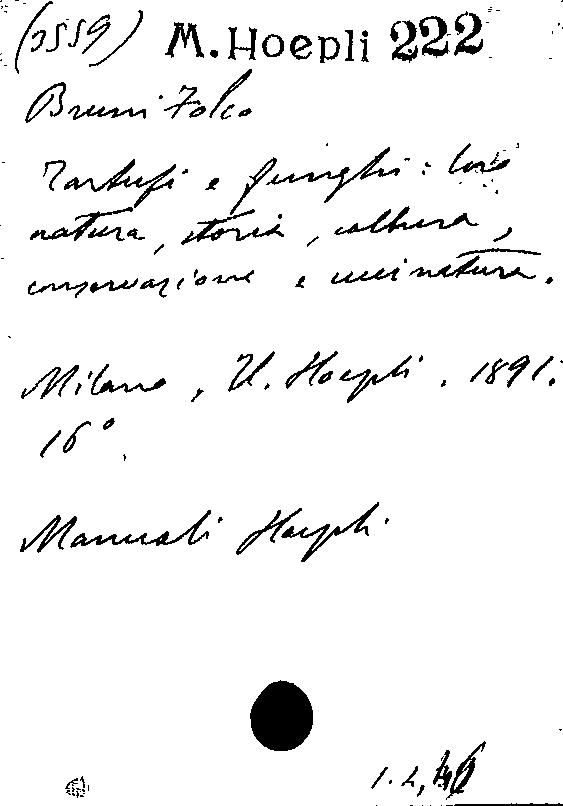 (3559) M. Hoepli 222
Bruni Folco
Tartufi e funghi: loro
natura, storia, coltura,
conservazione e cucinatura.
Milano, U. Hoepli. 1891.
16°.
Manuali Hoepli.